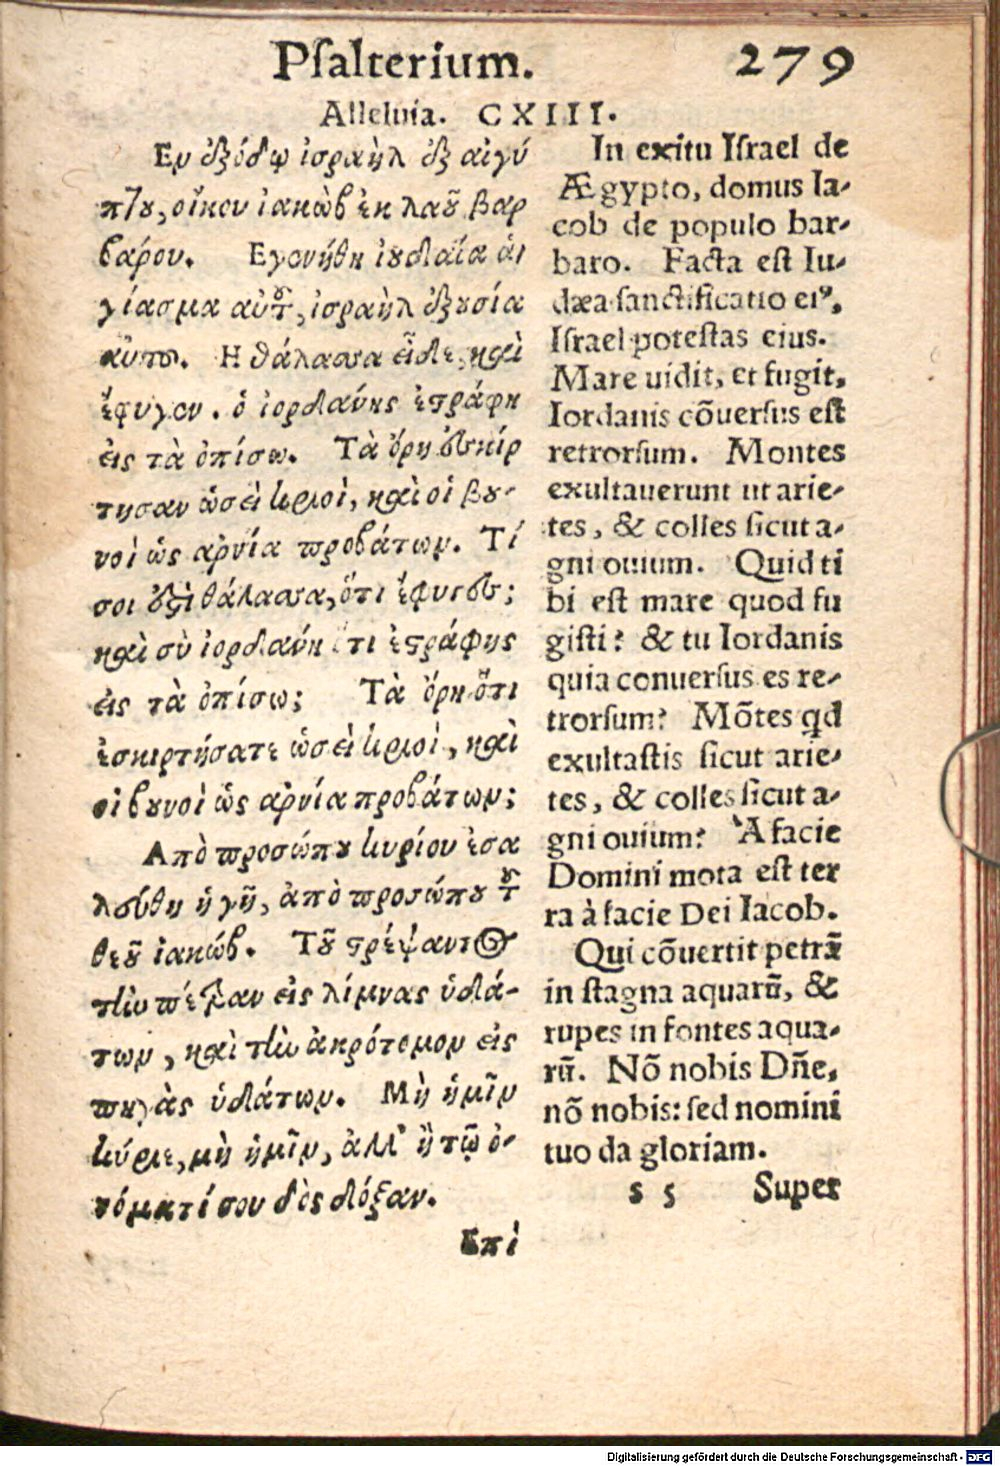 Psalterium. 279
Alleluia. CXIII.
Εν ἐξόδῳ ἰσραὴλ ἐξ αἰγύ
πτου, οἴκου ἰακὼβ ἐκ λαοῦ βαρ
βάρου. Εγενήθη ἰουδαία ἁ
γίασμα αὐτοῦ, ἰσραὴλ ἐξουσία
αὐτοῦ. Η θάλασσα εἶδε, καὶ
ἔφυγεν. ὁ ἰορδάνης ἐστράφη
εἰς τὰ ὀπίσω. Τὰ ὄρη ἐσκίρ
τησαν ὡσεὶ κριοὶ, καὶ οἱ βου-
νοὶ ὡς αρνία προβάτων. Τί
σοι ἐστὶ θάλασσα, ὅτι ἔφυγες;
καὶ σὺ ἰορδάνη ὅτι ἐστράφης
εἰς τὰ ὀπίσω; Τὰ ὄρη ὅτι
ἐσκιρτήσατε ὡσεὶ κριοὶ, καὶ
οἱ βουνοὶ ὡς αρνία προβάτων;
Απὸ προσώπου κυρίου ἐσα
λεύθη ἡ γῆ, ἀπὸ προσώπου τοῦ
θεοῦ ἰακώβ. Τοῦ στρέψαντος
τὴν πέτραν εἰς λίμνας ὑδά-
των, καὶ τὴν ἀκρότομον εἰς
πηγὰς ὑδάτων. Μὴ ἡμῖν
κύριε, μὴ ἡμῖν, ἀλλ' ἢ τῷ ὀ-
νόματί σου δὸς δόξαν.
Επὶ
In exitu Israel de
Ægypto, domus Ia-
cob de populo bar-
baro. Facta est Iu-
dæa sanctificatio eiꝰ,
Israel potestas eius.
Mare uidit, et fugit,
Iordanis cõuersus est
retrorsum. Montes
exultauerunt ut arie-
tes, & colles sicut a-
gni ouium. Quid ti
bi est mare quod fu
gisti? & tu Iordanis
quia conuersus es re-
trorsum? Mõtes qd
exultastis sicut arie-
tes, & colles sicut a-
gni ouium? A facie
Domini mota est ter
ra à facie Dei Iacob.
Qui cõuertit petrã
in stagna aquarũ, &
rupes in fontes aqua-
rũ. Nõ nobis Dñe,
nõ nobis: sed nomini
tuo da gloriam.
s 5 Super
Digitalisierung gefördert durch die Deutsche Forschungsgemeinschaft - DFG